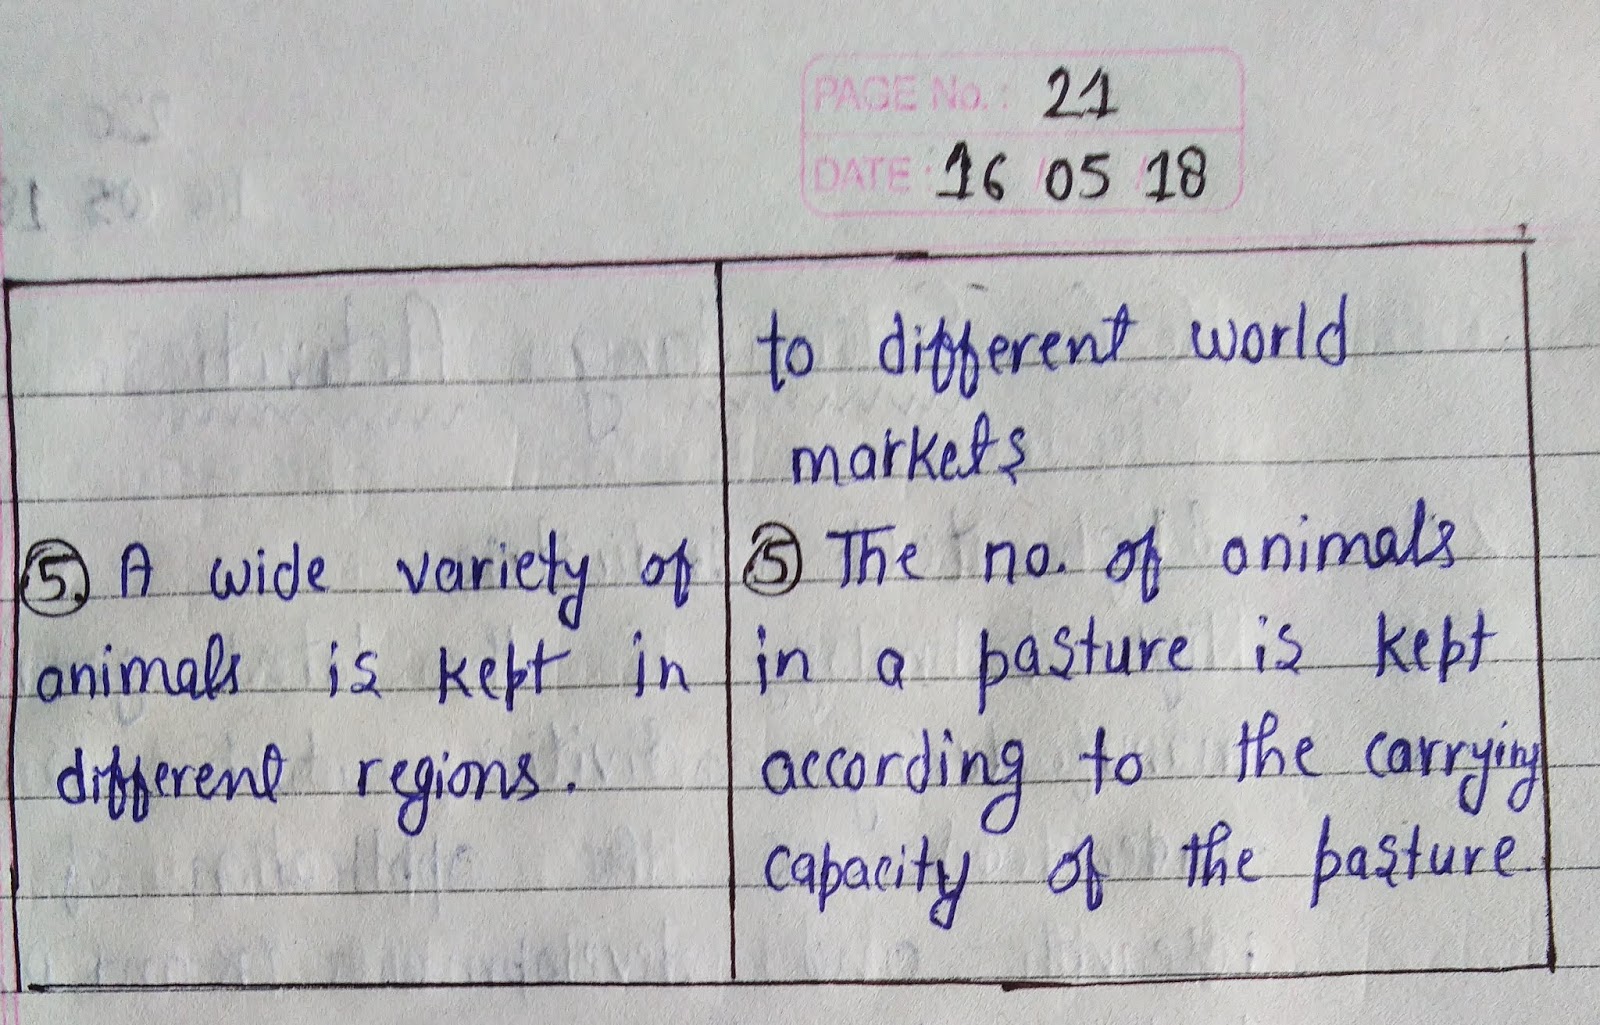 PAGE No.: 21
DATE: 16/05/18
to different world
markets
5. A wide variety of
animals is kept in
different regions.
5 The no. of animals
in a pasture is kept
according to the carrying
capacity of the pasture.